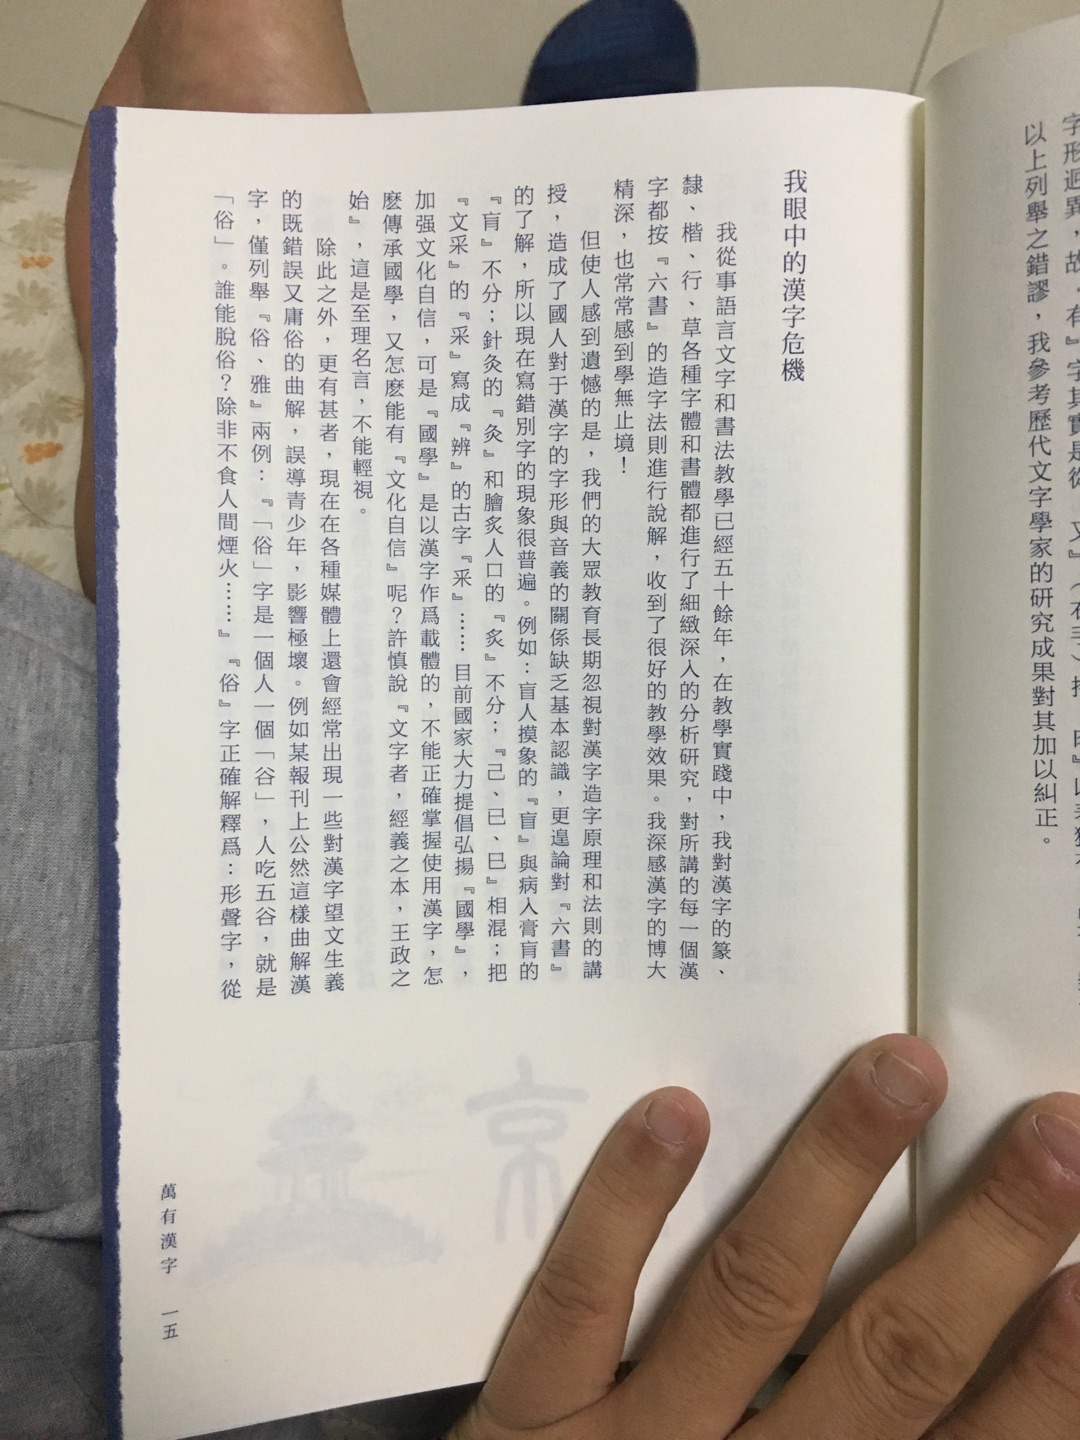 以上列舉之錯謬，我參考歷代文字學家的研究成果對其加以糾正。
我眼中的漢字危機
我從事語言文字和書法教學已經五十餘年，在教學實踐中，我對漢字的篆、
隸、楷、行、草各種字體和書體都進行了細緻深入的分析研究，對所講的每一個漢
字都按『六書』的造字法則進行說解，收到了很好的教學效果。我深感漢字的博大
精深，也常常感到學無止境！
但使人感到遺憾的是，我們的大眾教育長期忽視對漢字造字原理和法則的講
授，造成了國人對于漢字的字形與音義的關係缺乏基本認識，更遑論對『六書』
的了解，所以現在寫錯別字的現象很普遍。例如：盲人摸象的『盲』與病入膏肓的
『肓』不分；針灸的『灸』和膾炙人口的『炙』不分；『己、已、巳』相混；把
『文采』的『采』寫成『辨』的古字『釆』……目前國家大力提倡弘揚『國學』，
加强文化自信，可是『國學』是以漢字作爲載體的，不能正確掌握使用漢字，怎
麽傳承國學，又怎麽能有『文化自信』呢？許慎說『文字者，經義之本，王政之
始』，這是至理名言，不能輕視。
除此之外，更有甚者，現在在各種媒體上還會經常出現一些對漢字望文生義
的既錯誤又庸俗的曲解，誤導青少年，影響極壞。例如某報刊上公然這樣曲解漢
字，僅列舉『俗、雅』兩例：『「俗」字是一個人一個「谷」，人吃五谷，就是
「俗」。誰能脫俗？除非不食人間煙火……』『俗』字正確解釋爲：形聲字，從
萬有漢字 一五